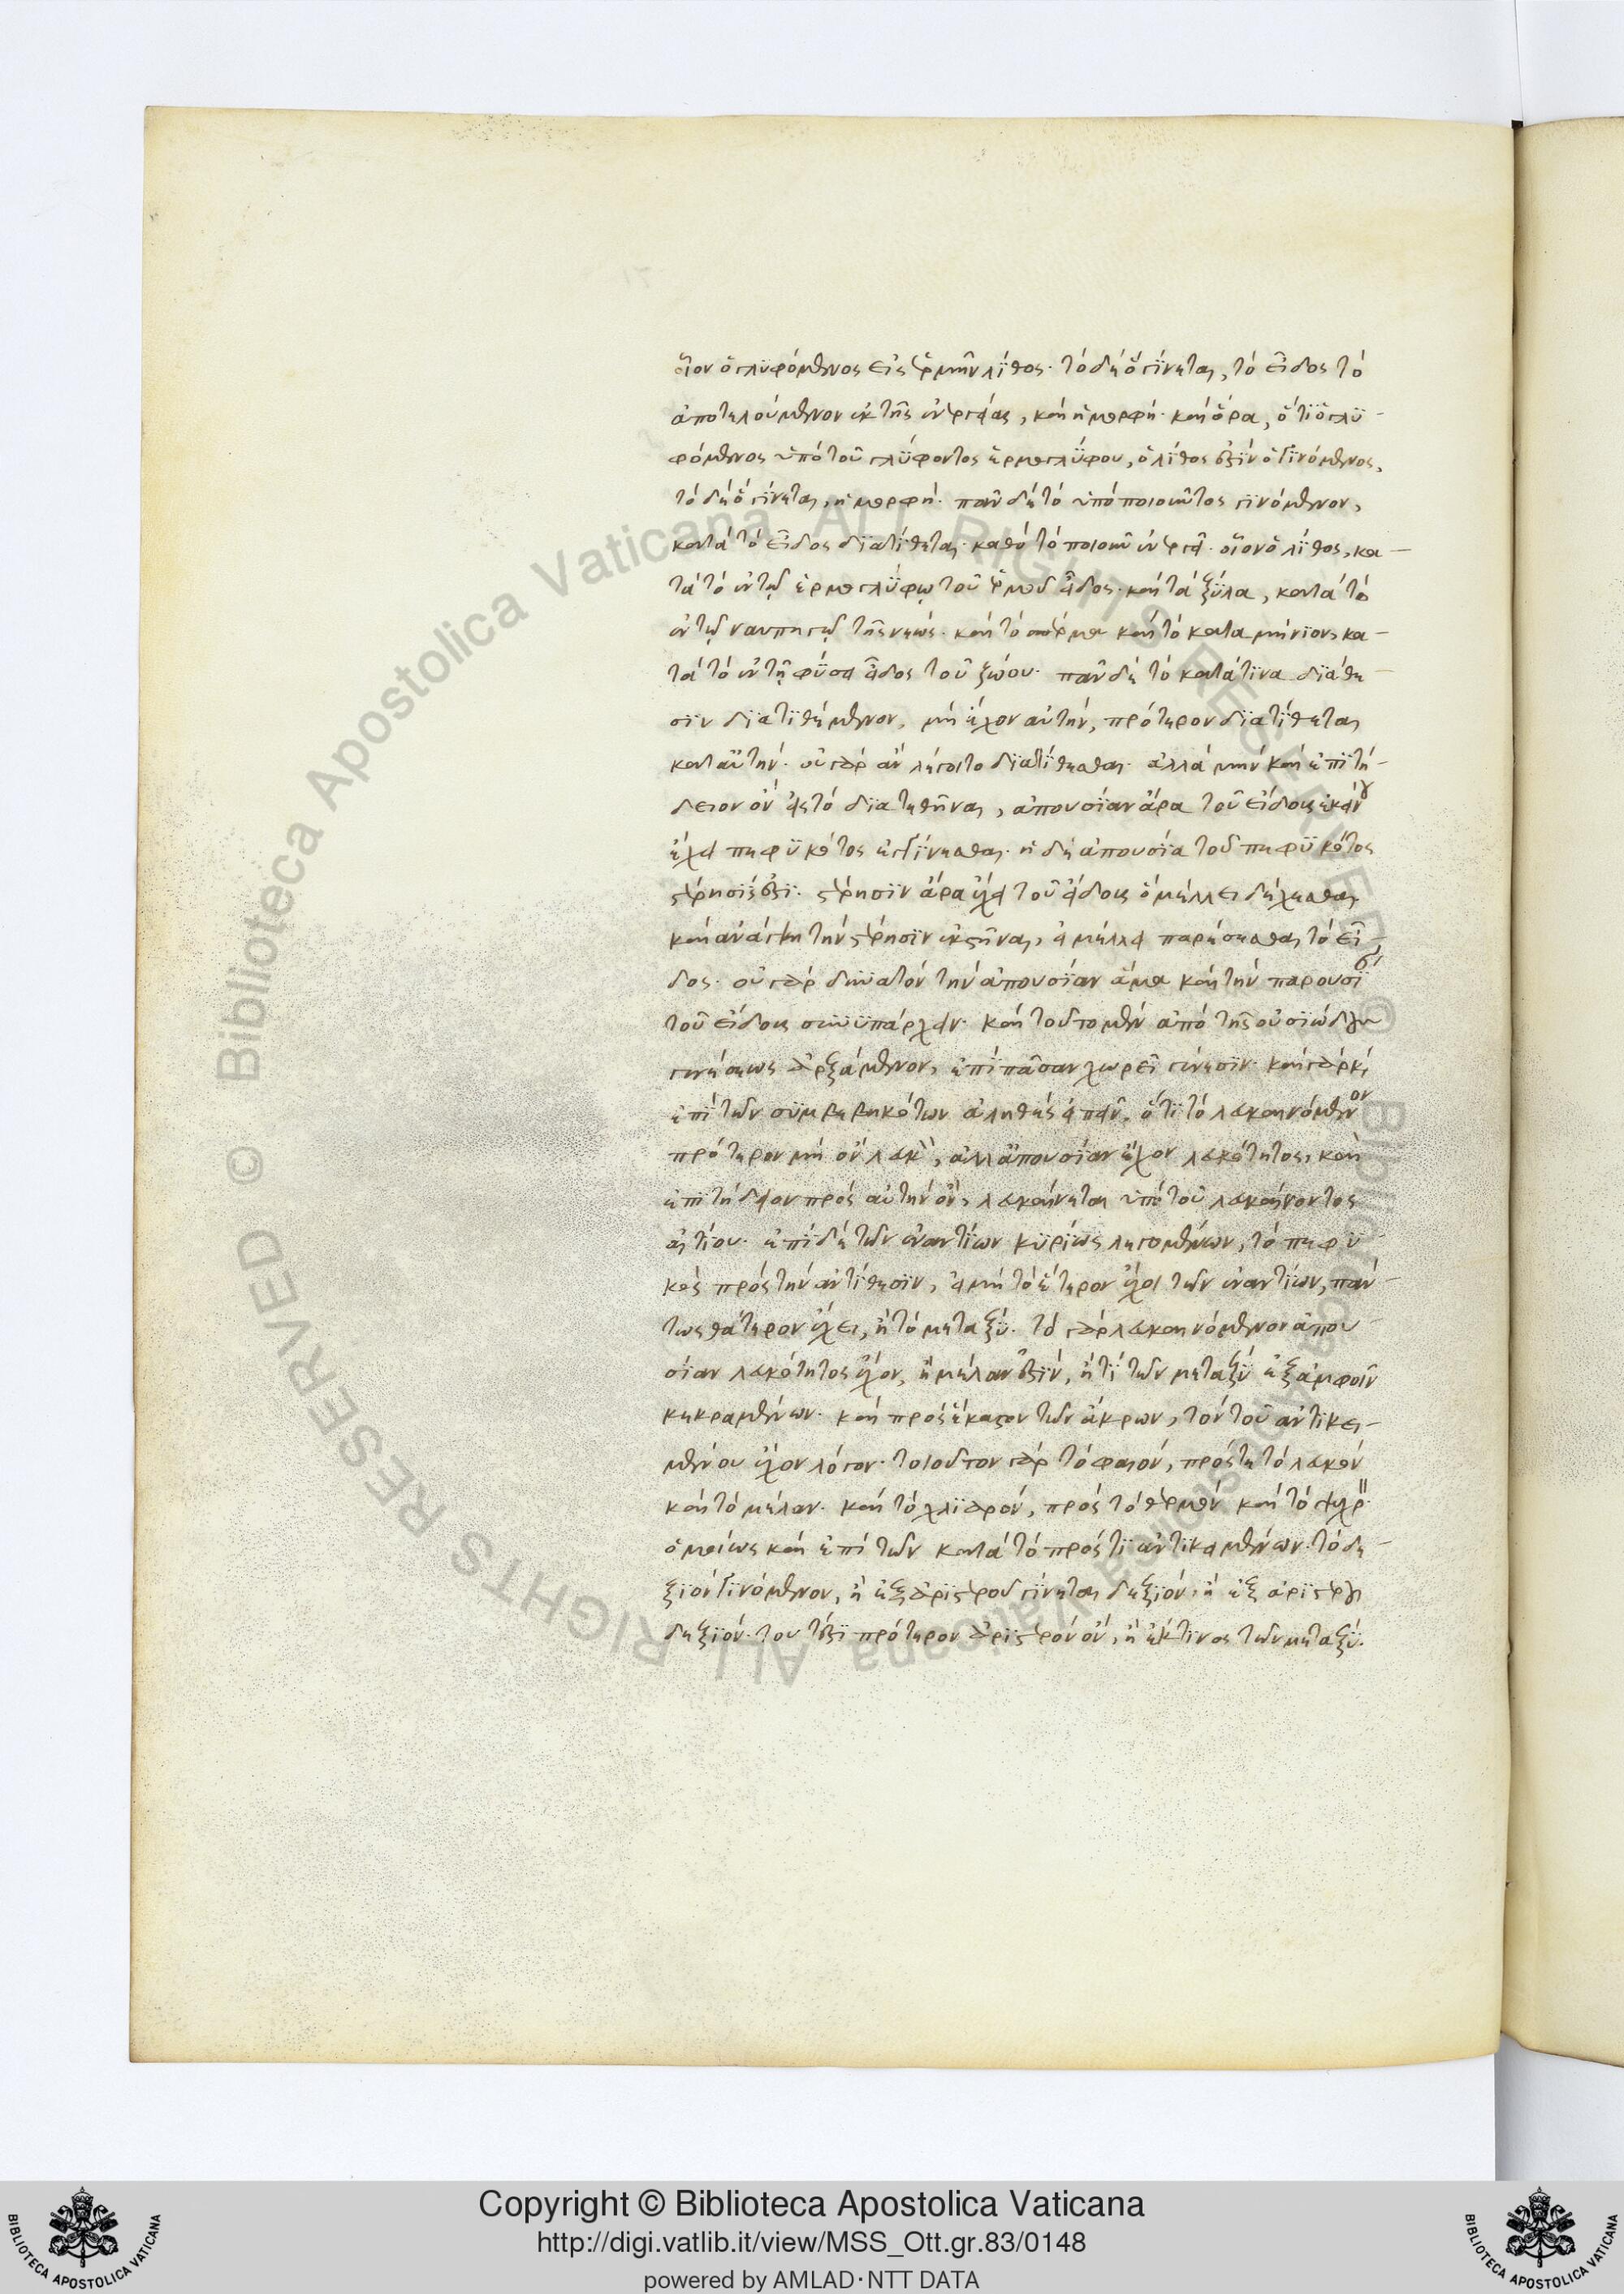 οἷον ὁ γλυφόμενος εἰς ἑρμῆν λίθος· τὸ δὲ ὃ γίνεται, τὸ εἶδος τὸ
ἀποτελούμενον ἐκ τῆς ἐνεργείας, καὶ ἡ μορφή· καὶ ὅρα, ὅτι ὁ γλυ-
φόμενος ὑπὸ τοῦ γλύφοντος ἑρμογλύφου, ὁ λίθος ἐστὶν ὁ γινόμενος,
τὸ δὲ ὃ γίνεται, ἡ μορφή· πᾶν δὲ τὸ ὑπὸ ποιοῦντος γινόμενον,
κατὰ τὸ εἶδος διατίθεται καθὸ τὸ ποιοῦν ἐνεργεῖ· οἷον ὁ λίθος, κα-
τὰ τὸ ἐν τῷ ἑρμογλύφῳ τοῦ ἑρμοῦ εἶδος· καὶ τὰ ξύλα, κατὰ τὸ
ἐν τῷ ναυπηγῷ τῆς νεώς· καὶ τὸ σπέρμα καὶ τὸ καταμήνιον, κα-
τὰ τὸ ἐν τῇ φύσει εἶδος τοῦ ζώου· πᾶν δὲ τὸ κατά τινα διάθε
σιν διατιθέμενον, μὴ ἔχον αὐτὴν, πρότερον διατίθεται
κατ αὐτήν· οὐ γὰρ ἂν λέγοιτο διατίθεσθαι· ἀλλὰ μὴν καὶ ἐπιτή-
δειον ὂν εἰς τὸ διατεθῆναι, ἀπουσίαν ἄρα τοῦ εἴδους ἐκείνου
ἔχει πεφυκότος ἐγγίνεσθαι· ἡ δὲ ἀπουσία τοῦ πεφυκότος
στέρησίς ἐστι· στέρησιν ἄρα ἔχει τοῦ εἴδους ὃ μέλλει δέχεσθαι
καὶ ἀνάγκη τὴν στέρησιν ἐκστῆναι, εἰ μέλλει παρέσεσθαι τὸ εἶ-
δος· οὐ γὰρ δυνατὸν τὴν ἀπουσίαν ἅμα καὶ τὴν παρουσίαν
τοῦ εἴδους συνυπάρχειν· καὶ τοῦτο μὲν ἀπὸ τῆς οὐσιώδους
κινήσεως ἀρξάμενον, ἐπὶ πᾶσαν χωρεῖ κίνησιν· καὶ γὰρ καὶ
ἐπὶ τῶν συμβεβηκότων ἀληθὲς εἰπεῖν, ὅτι τὸ λευκαινόμενον
πρότερον μὴ ὂν λευκὸν, ἀλλ ἀπουσίαν ἔχον λευκότητος, καὶ
ἐπιτήδειον πρὸς αὐτὴν ὂν, λευκαίνεται ὑπὸ τοῦ λευκαίνοντος
αἰτίου· ἐπὶ δὲ τῶν ἐναντίων κυρίως λεγομένων, τὸ πεφυ
κὸς πρὸς τὴν ἀντίθεσιν, εἰ μὴ τὸ ἕτερον ἔχοι τῶν ἐναντίων, πάν-
τως θάτερον ἔχει, ἢ τὸ μεταξύ· τὸ γὰρ λευκαινόμενον ἀπου
σίαν λευκότητος ἔχον, ἢ μέλαν ἐστὶν, ἤ τι τῶν μεταξὺ ἐξ ἀμφοῖν
κεκραμένων· καὶ πρὸς ἕκαστον τῶν ἄκρων, τὸν τοῦ ἀντικει-
μένου ἔχον λόγον· τοιοῦτον γὰρ τὸ φαιὸν, πρός τε τὸ λευκὸν
καὶ τὸ μέλαν· καὶ τὸ χλιαρὸν, πρὸς τὸ θερμὸν καὶ τὸ ψυχρόν·
ὁμοίως καὶ ἐπὶ τῶν κατὰ τὸ πρός τι ἀντικειμένων· τὸ δε-
ξιὸν γινόμενον, ἢ ἐξ ἀριστεροῦ γίνεται δεξιὸν, ἢ ἐξ ἀριστεροῦ
δεξιόν· τουτέστι πρότερον ἀριστερὸν ὂν, ἢ ἔκ τινος τῶν μεταξύ·
Copyright © Biblioteca Apostolica Vaticana
http://digi.vatlib.it/view/MSS_Ott.gr.83/0148
powered by AMLAD·NTT DATA
BIBLIOTECA APOSTOLICA VATICANA
BIBLIOTECA APOSTOLICA VATICANA